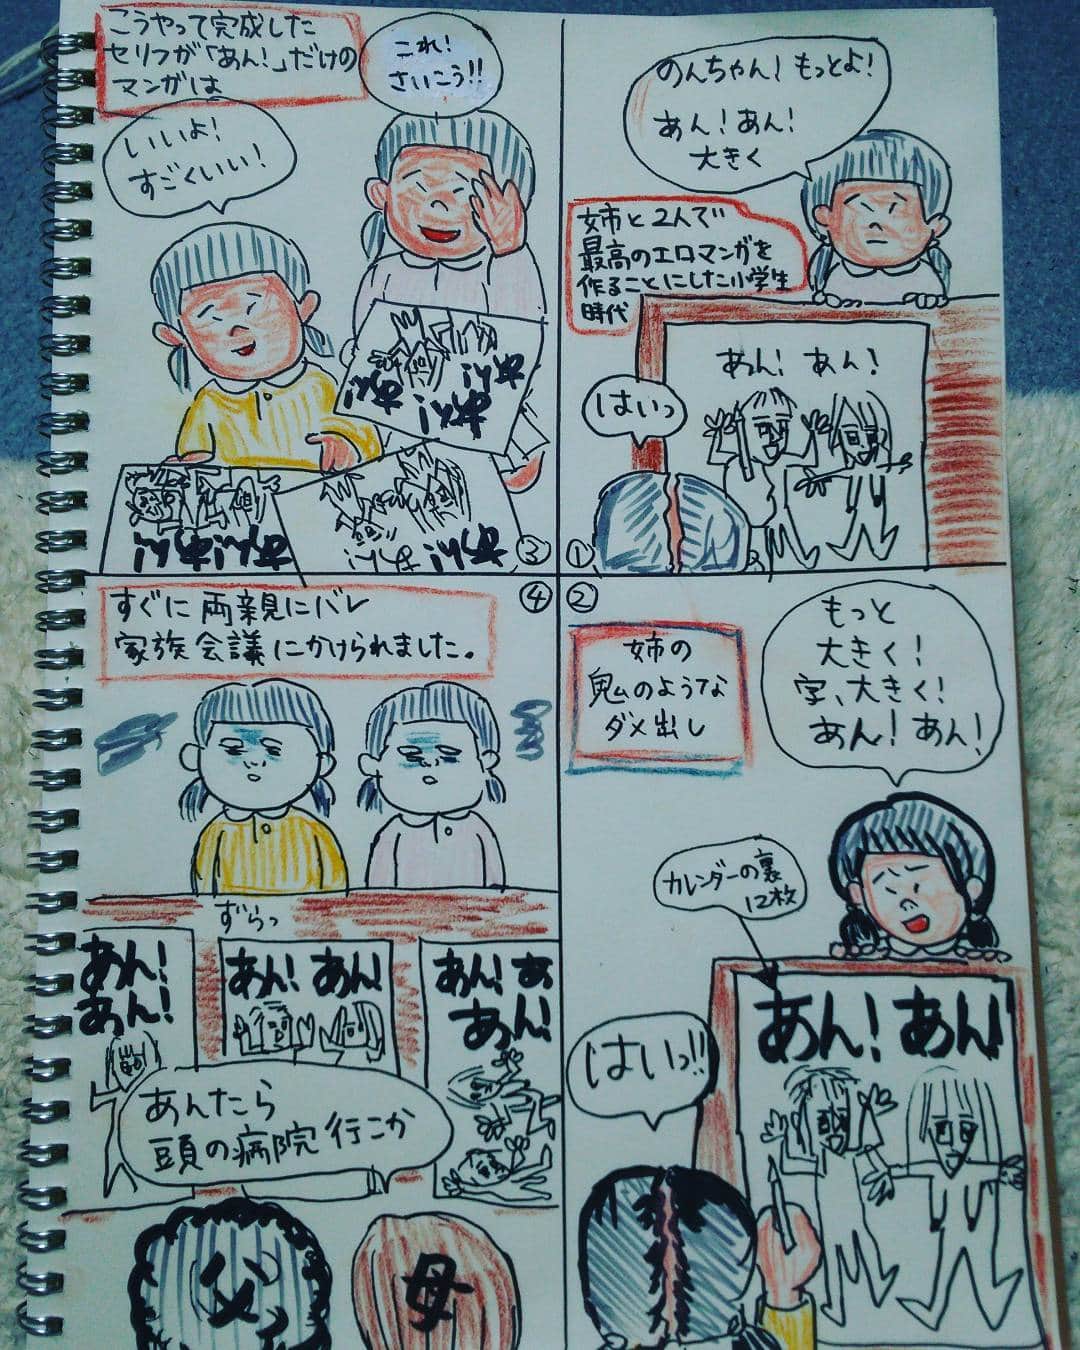 ①
のんちゃん！もっとよ！
あん！あん！
大きく
姉と2人で
最高のエロマンガを
作ることにした小学生
時代
あん！あん！
はいっ
②
もっと
大きく！
字、大きく！
あん！あん！
姉の
鬼のような
ダメ出し
カレンダーの裏
12枚
あん！あん！
はいっ!!
③
こうやって完成した
セリフが「あん！」だけの
マンガは
これ！
さいこう!!
いいよ！
すごくいい！
④
すぐに両親にバレ
家族会議にかけられました。
ずらっ
あん！
あん！
あん！あん！
あん！あ
あん！
あんたら
頭の病院行こか
父
母